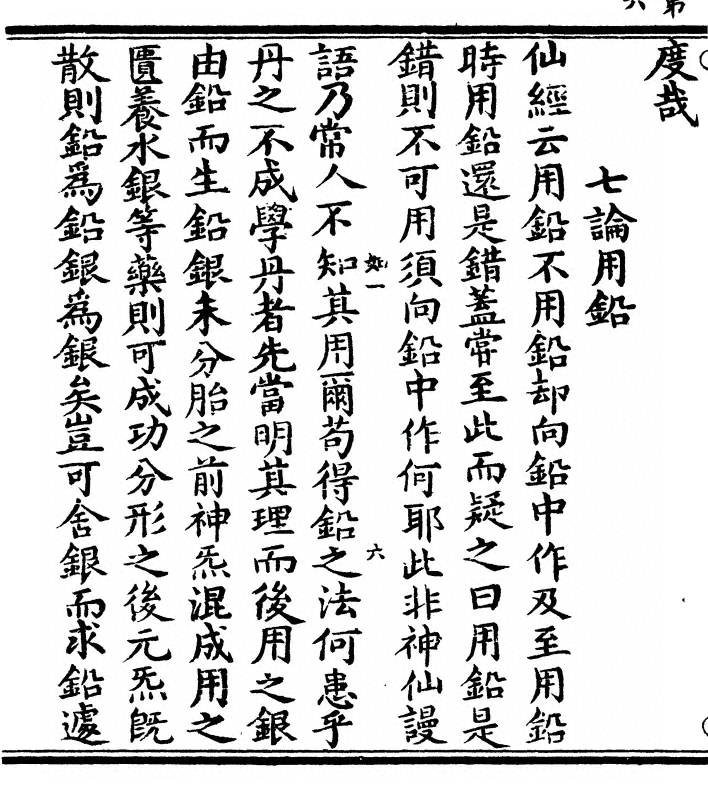 度哉
七論用鉛
仙經云用鉛不用鉛却向鉛中作及至用鉛
時用鉛還是錯蓋常至此而疑之曰用鉛是
錯則不可用須向鉛中作何耶此非神仙謾
語乃常人不知其用爾苟得鉛之法何患乎
如一
六
丹之不成學丹者先當明其理而後用之銀
由鉛而生鉛銀未分胎之前神炁混成用之
匱養水銀等藥則可成功分形之後元炁旣
散則鉛爲鉛銀爲銀矣豈可舍銀而求鉛遽